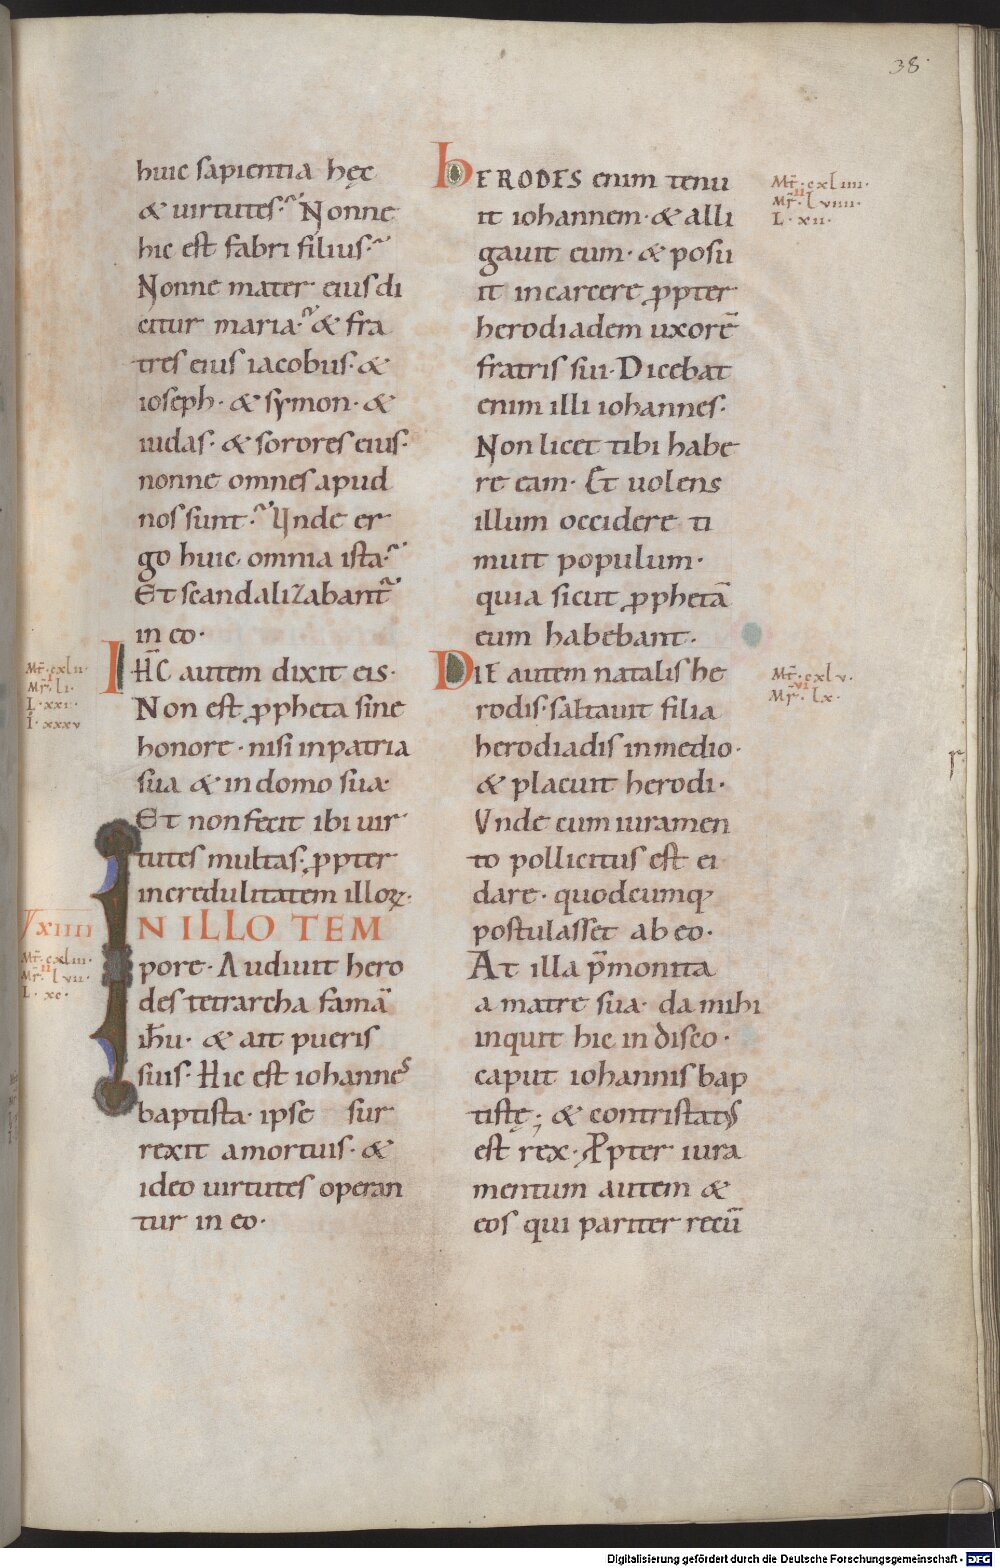 38
huic sapientia hęc
& uirtutes? Nonne
hic est fabri filius?
Nonne mater eius di
citur maria? & fra
tres eius iacobus· &
ioseph· & symon· &
iudas· & sorores eius·
nonne omnes apud
nos sunt? Unde er
go huic omnia ista?
Et scandalizabant̃
in eo·
IHC autem dixit eis·
Non est ꝓpheta sine
honore· nisi in patria
sua & in domo sua·
Et non fecit ibi uir
tutes multas· ꝓpter
incredulitatem illoꝝ·
IN ILLO TEM
pore· Audiuit hero
des tetrarcha famā
ih̄u· & ait pueris
suis· Hic est iohannes
baptista· ipse sur
rexit a mortuis· &
ideo uirtutes operan
tur in eo·
Mt̄· cxlii·
Mr̄· li·
L· xxi·
I̅· xxxv
xiiii
Mt̄· cxliii·
ii
Mr̄· lvii·
L· xc·
hERODES enim tenu
it iohannem· & alli
gauit eum· & posu
it in carcere ꝓpter
herodiadem uxorē
fratris sui· Dicebat
enim illi iohannes·
Non licet tibi habe
re eam· Et uolens
illum occidere ti
muit populum·
quia sicut ꝓphetā
eum habebant·
DIE autem natalis he
rodis· saltauit filia
herodiadis in medio·
& placuit herodi·
Vnde cum iuramen
to pollicitus est ei
dare· quodcumq;
postulasset ab eo·
At illa p̄monita
a matre sua· da mihi
inquit hic in disco·
caput iohannis bap
tistę; & contristatus
est rex· Ꝓpter iura
mentum autem &
eos qui pariter recū
Mt̄· cxliiii·
ii
Mr̄· lviiii·
L· xii·
Mt̄· cxlv·
vi
Mr̄· lx·
Digitalisierung gefördert durch die Deutsche Forschungsgemeinschaft - DFG